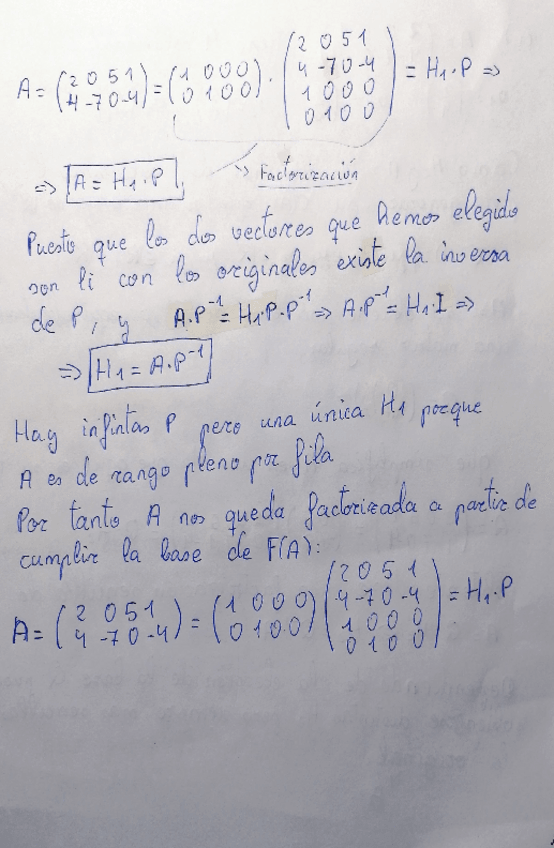 A = (2 0 5 1 / 4 -7 0 -4) = (1 0 0 0 / 0 1 0 0) · (2 0 5 1 / 4 -7 0 -4 / 1 0 0 0 / 0 1 0 0) = H₁·P ⇒
⇒ A = H₁·P → Factorización
Puesto que los dos vectores que hemos elegido
son li con los originales existe la inversa
de P, y A·P⁻¹ = H₁·P·P⁻¹ ⇒ A·P⁻¹ = H₁·I ⇒
⇒ H₁ = A·P⁻¹
Hay infintas P pero una única H₁ porque
A es de rango pleno por fila
Por tanto A nos queda factorizada a partir de
cumplir la base de F(A):
A = (2 0 5 1 / 4 -7 0 -4) = (1 0 0 0 / 0 1 0 0) (2 0 5 1 / -4 -7 0 -4 / 1 0 0 0 / 0 1 0 0) = H₁·P